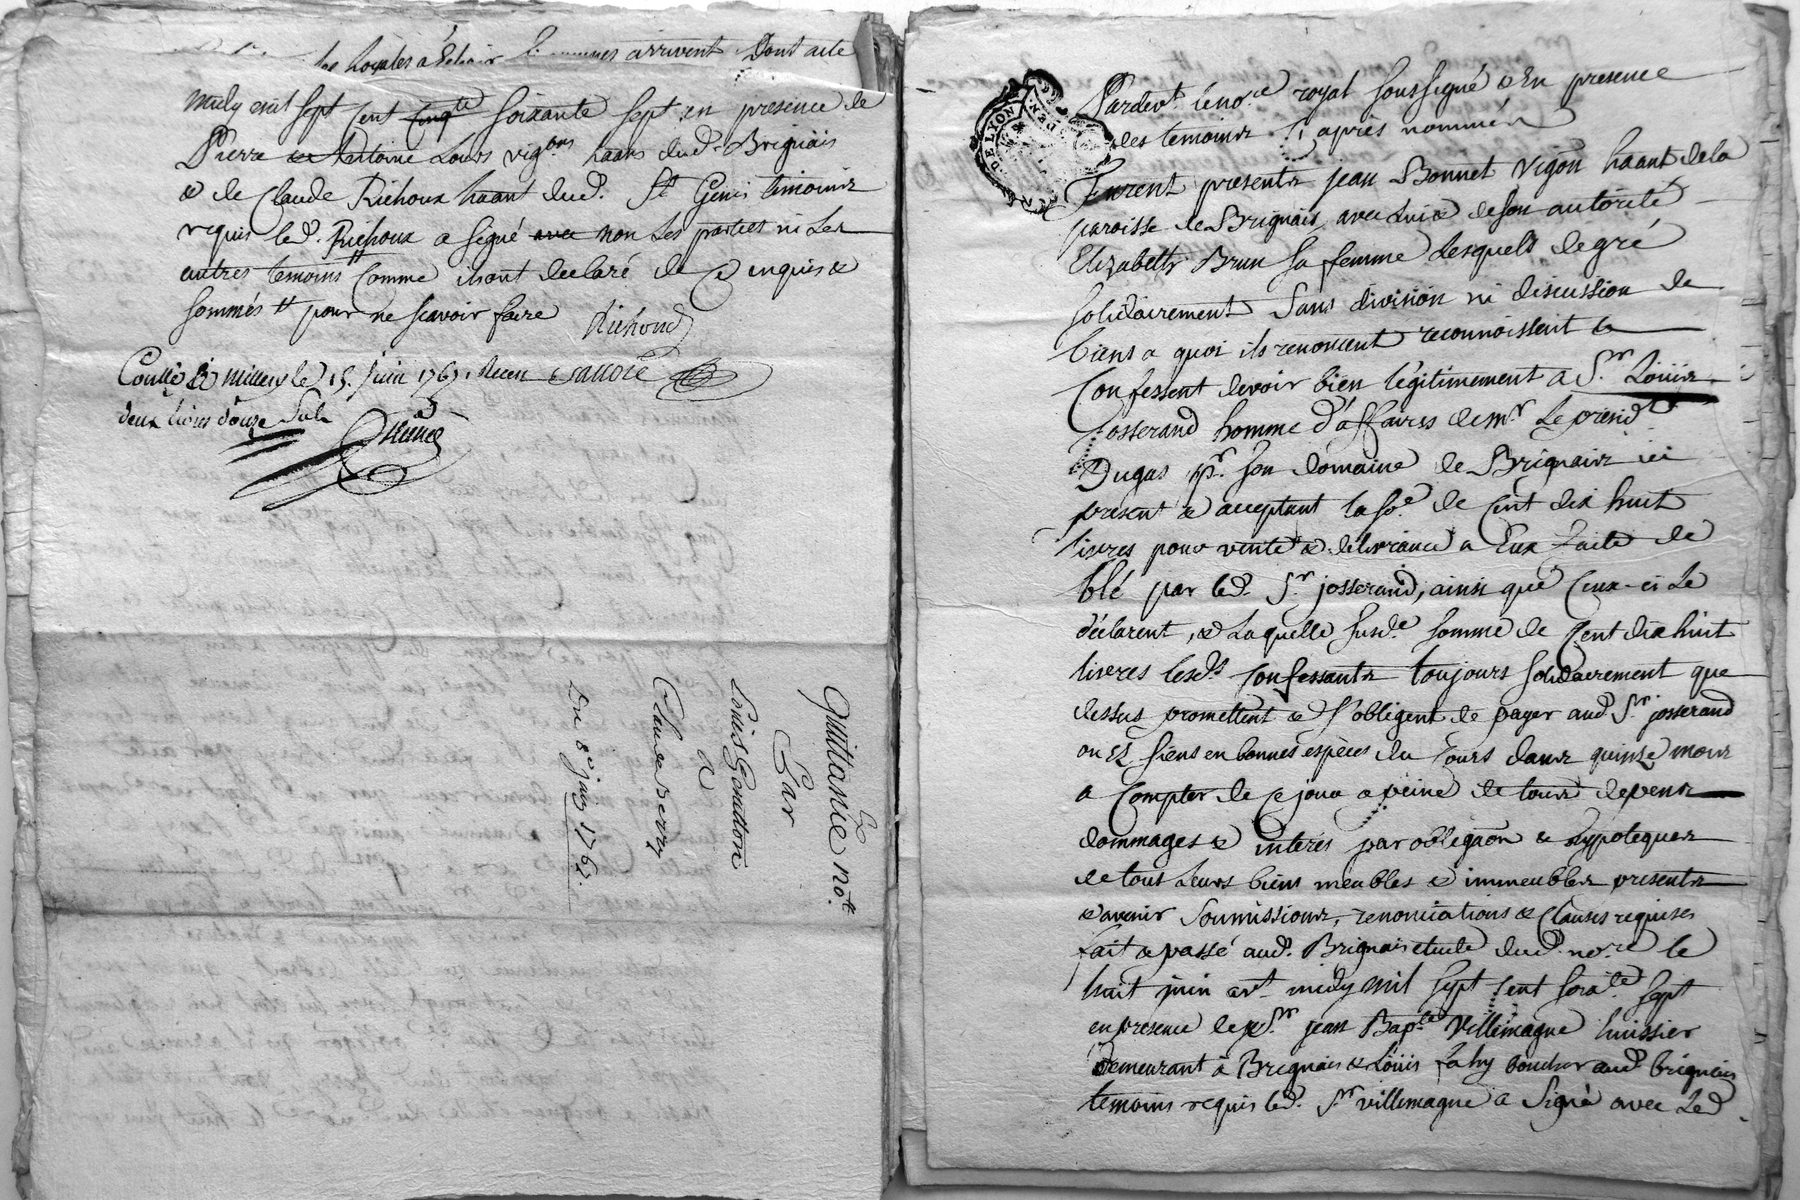 arrivent Dont acte
midy mil sept Cent Cinqte soixante sept en presence de
Pierre & Antoine Louis vigons haans dud. Brignais
& de Claude Richoux haant dud. St Genis temoins
requis led. Richoux a signé avec non Les parties ni Les
autres temoins comme ils ont declaré de ce enquis &
sommés pour ne scavoir faire Richoud
Coullé a millery le 15. Juin 1767. Recu
deux livres d'ouze sols
Quittance not.
Par
Louis Goudon
A
Claude Berry
Du 8e juin 1767.
DE LYON
Pardevt. le nore. royal soussigné & En presence
des temoins Ci après nommés
Furent presents jean Bonnet vigon haant de la
paroisse de Brignais, avec Lui & de son autorité
Elizabeth Brun sa femme Lesquels de gré
solidairement sans division ni discussion de
biens a quoi ils renoncent reconnoissent &
Confessent devoir bien légitimement a Sr. Louis
Josserand homme d'affaires de mr Le presidt
Dugas pr. son domaine de Brignais ici
present & acceptant la soe. de Cent dix huit
livres pour vente & delivrance a Eux Faite de
blé par led. Sr. josserand, ainsi que Ceux-ci Le
déclarent, & Laquelle susde. somme de Cent dix huit
livres lesds. Confessants toujours solidairement que
dessus promettent & s'obligent de payer aud. Sr. josserand
ou Es siens en bonnes espèces du Cours dans quinze mois
a Compter de Ce jour a peine de tous depens
dommages & interès par obligaon & hypoteques
de tous Leurs biens meubles & immeubles presents
& avenir Soumissions, renonciations & Clauses requises
fait & passé aud. Brignais etude dud. nore. le
huit juin avt. midy mil sept Cent soixte. sept
en presence de Sr. jean Bapte. Villemagne huissier
Demeurant à Brignais & Louis Fahy boucher aud. brignais
temoins requis led. Sr. villemagne a Signé avec Led.